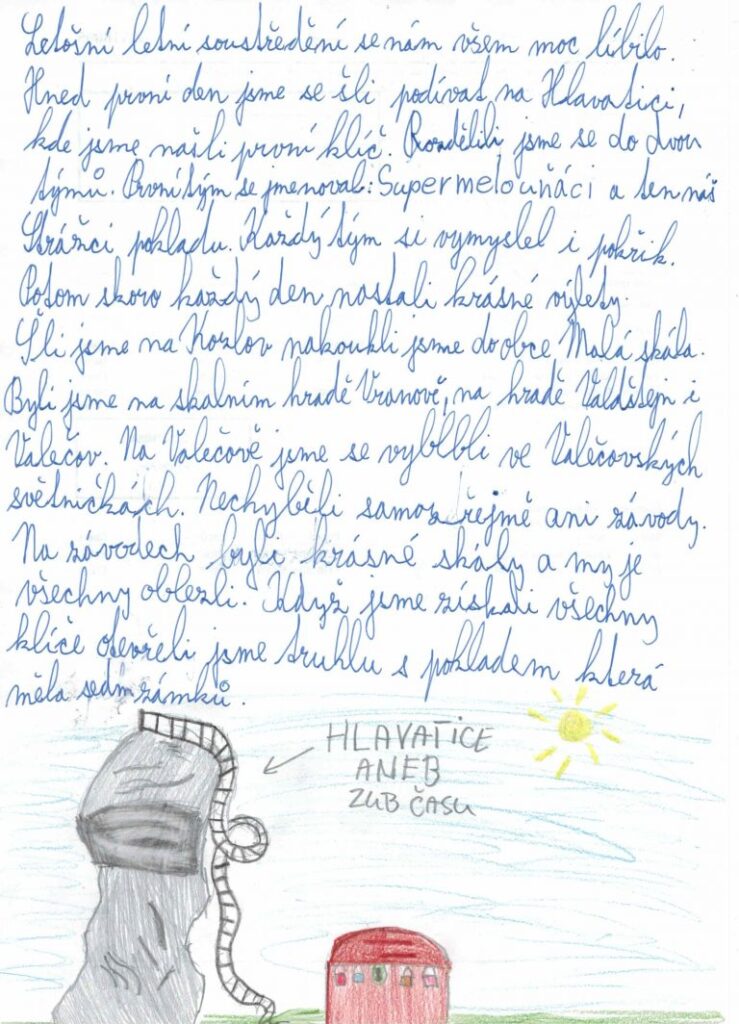 Letošní letní soustředění se nám všem moc líbilo.
Hned první den jsme se šli podívat na Hlavatici,
kde jsme našli první klíč. Rozdělili jsme se do dvou
týmů. První tým se jmenoval: Supermelouňáci a ten náš
Strážci pokladu. Každý tým si vymyslel i pokřik.
Potom skoro každý den nastali krásné výlety.
Šli jsme na Kozlov nakoukli jsme do obce Malá skála.
Byli jsme na skalním hradě Vranově, na hradě Valdštejn i
Valečov. Na Valečově jsme se vyblbli ve Valečovských
světničkách. Nechyběli samozřejmě ani závody.
Na závodech byli krásné skály a my je
všechny oblezli. Když jsme získali všechny
klíče otevřeli jsme truhlu s pokladem která
měla sedm zámků.
HLAVATICE
ANEB
ZUB ČASU